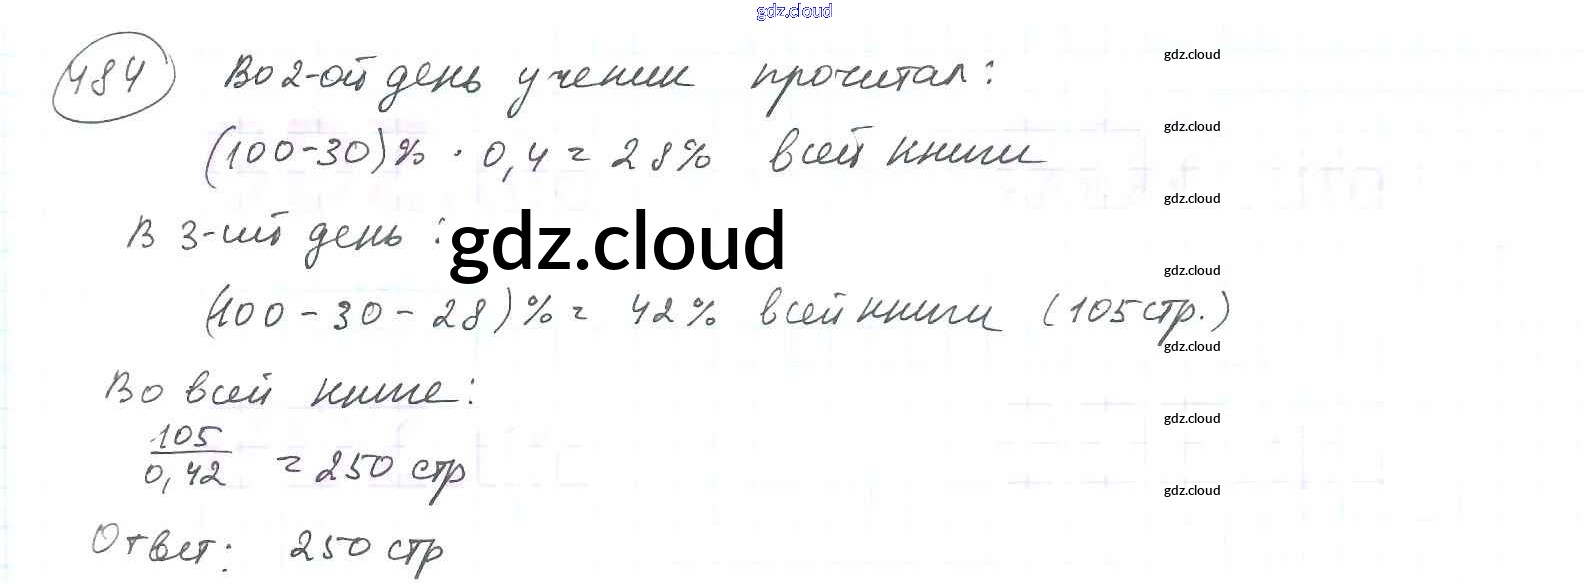 gdz.cloud
484 Во 2-ой день ученик прочитал:
gdz.cloud
(100-30)% · 0,4 = 28% всей книги
gdz.cloud
gdz.cloud
В 3-ий день:
gdz.cloud
gdz.cloud
(100-30-28)% = 42% всей книги (105 стр.)
gdz.cloud
Во всей книге:
gdz.cloud
105
0,42
= 250 стр
gdz.cloud
Ответ: 250 стр